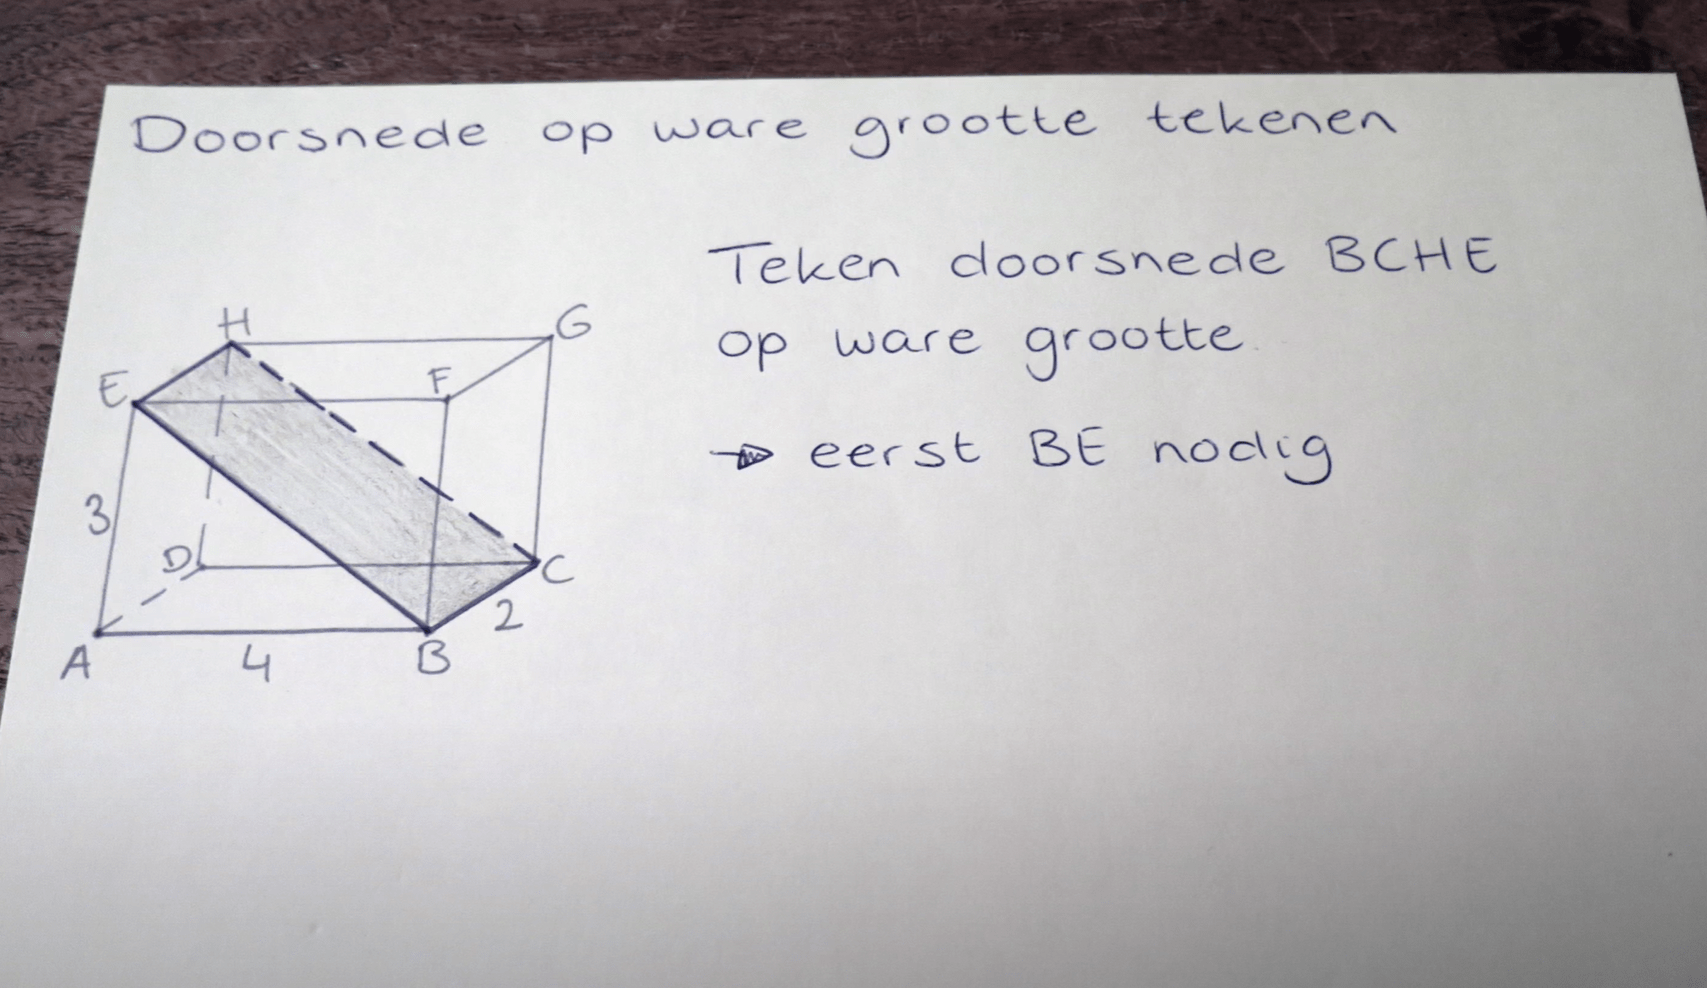 Doorsnede op ware grootte tekenen
Teken doorsnede BCHE
op ware grootte.
→ eerst BE nodig
H
G
E
F
3
D
C
2
A
4
B